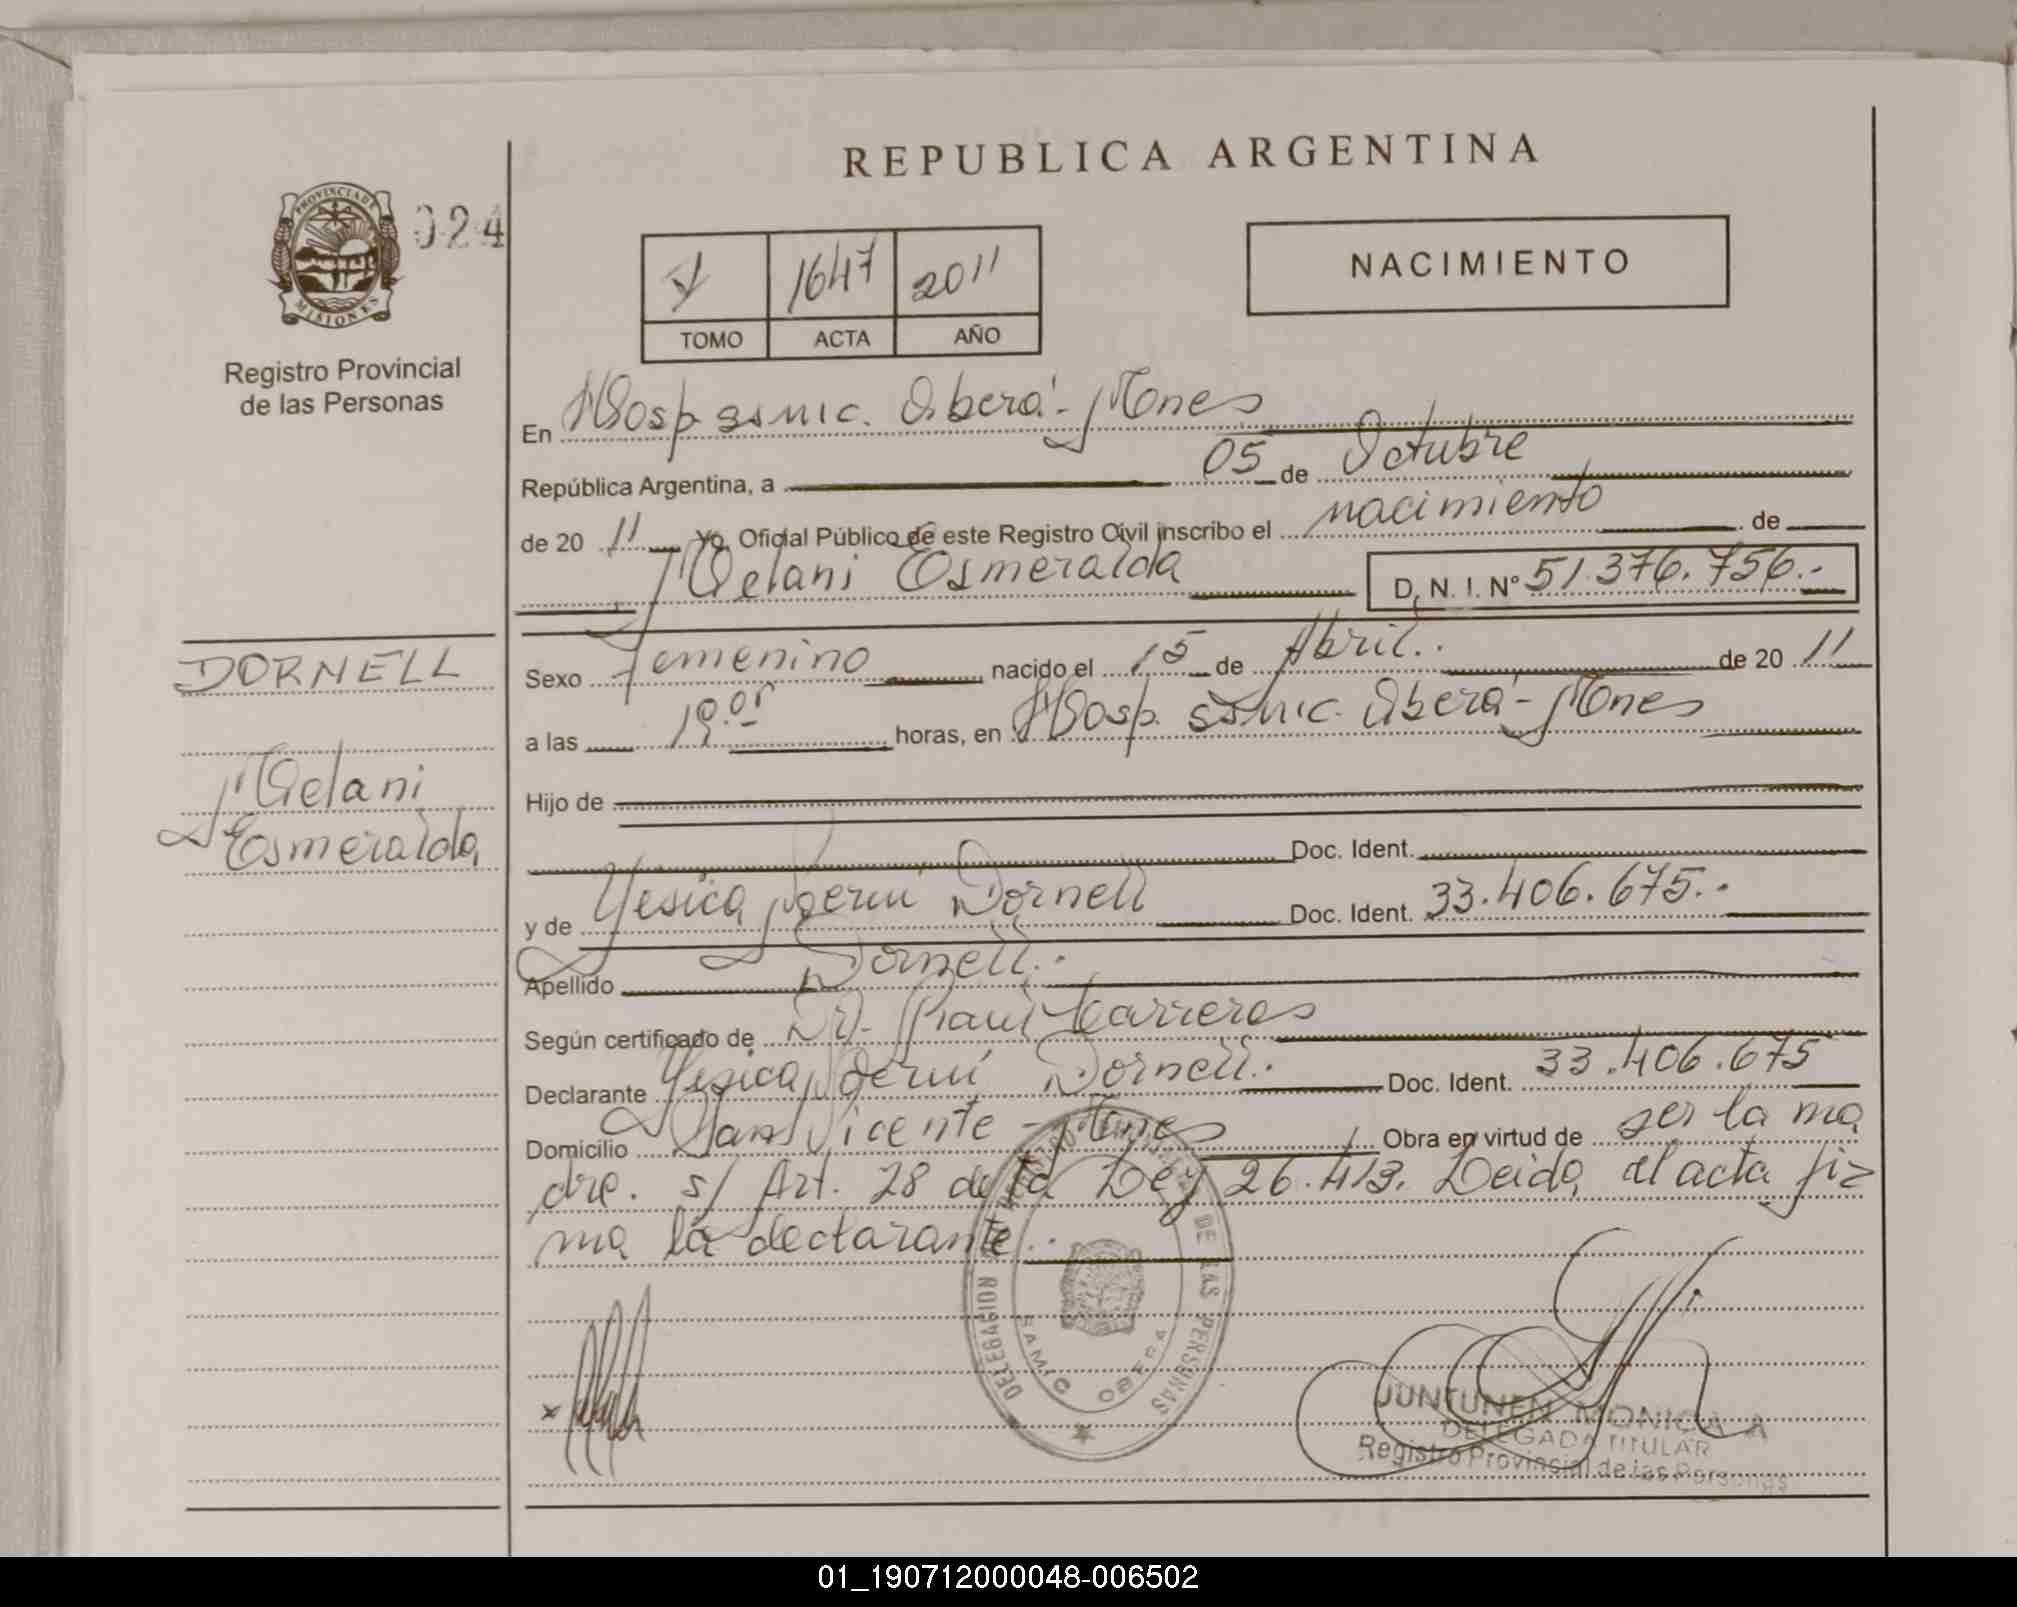 REPUBLICA ARGENTINA
PROVINCIA DE MISIONES
024
Registro Provincial
de las Personas
1647 2011
TOMO ACTA AÑO
NACIMIENTO
En Hosp ssmic. Oberá - Mnes
República Argentina, a 05 de Octubre
de 20 11 Yo, Oficial Público de este Registro Civil inscribo el nacimiento de
Melani Esmeralda D. N. I. Nº 51.376.756.-
DORNELL
Melani
Esmeralda
Sexo Femenino nacido el 15 de Abril.. de 20 11
a las horas, en Hosp. ssmic. Oberá - Mnes
Hijo de
Doc. Ident.
y de Yesica Dornell Doc. Ident. 33.406.675..
Apellido Dornell..
Según certificado de Dr. Raul Carreras
Declarante Yesica Dornell.. Doc. Ident. 33.406.675
Domicilio San Vicente - Mnes Obra en virtud de ser la ma
dre. s/ Art. 28 de la Ley 26.413. Leida el acta fir
ma la declarante..
DELEGACION DE LAS PERSONAS
SAMIC OBERA
x
JUNTUNEN MONICA A
DELEGADA TITULAR
Registro Provincial de las Personas
01_190712000048-006502